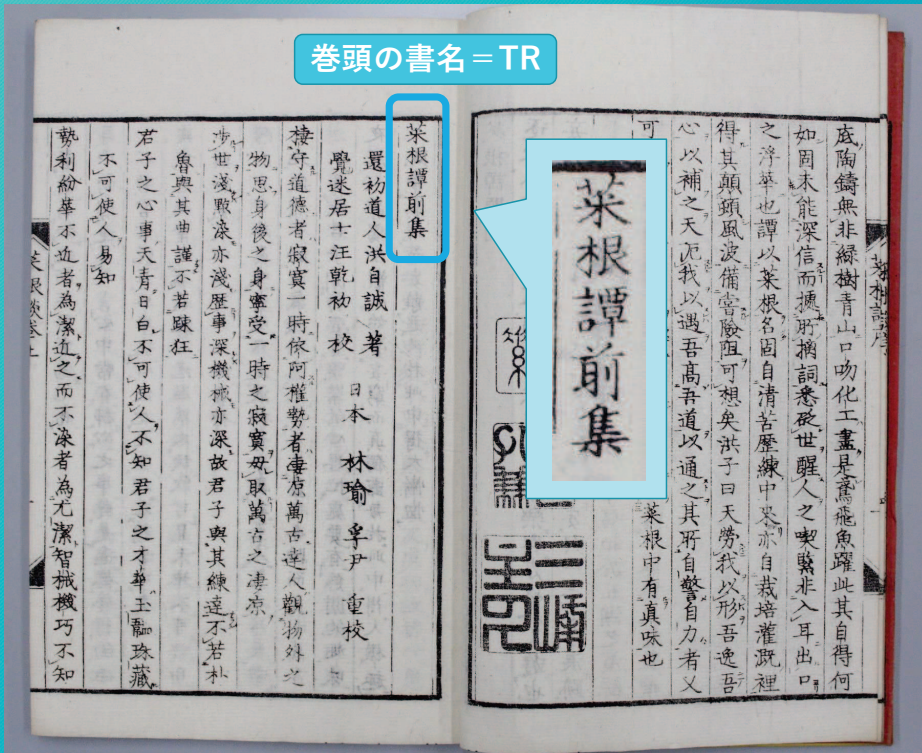 巻頭の書名＝TR
底陶鑄無非綠樹青山口吻化工盡是鳶飛魚躍此其自得何
如固未能深信而據所摘詞悉砭世醒人之喫緊非入耳出口
之浮華也譚以菜根名固自清苦歷練中來亦自栽培灌溉裡
得其顛頓風波備嘗險阻可想矣洪子曰天勞我以形吾逸吾
心以補之天厄我以遇吾高吾道以通之其所自警自力者又
可
菜根中有真味也
菜根譚前集
菜根譚前集
還初道人洪自誠 著
覺迷居士汪乾初 校
日本 林瑜 孚尹 重校
棲守道德者寂寞一時依阿權勢者凄凉萬古達人觀物外之
物思身後之身寧受一時之寂寞毋取萬古之凄凉
涉世淺點染亦淺歷事深機械亦深故君子與其練達不若朴
魯與其曲謹不若踈狂
君子之心事天青日白不可使人不知君子之才華玉韞珠藏
不可使人易知
勢利紛華不近者為潔近之而不染者為尤潔智械機巧不知